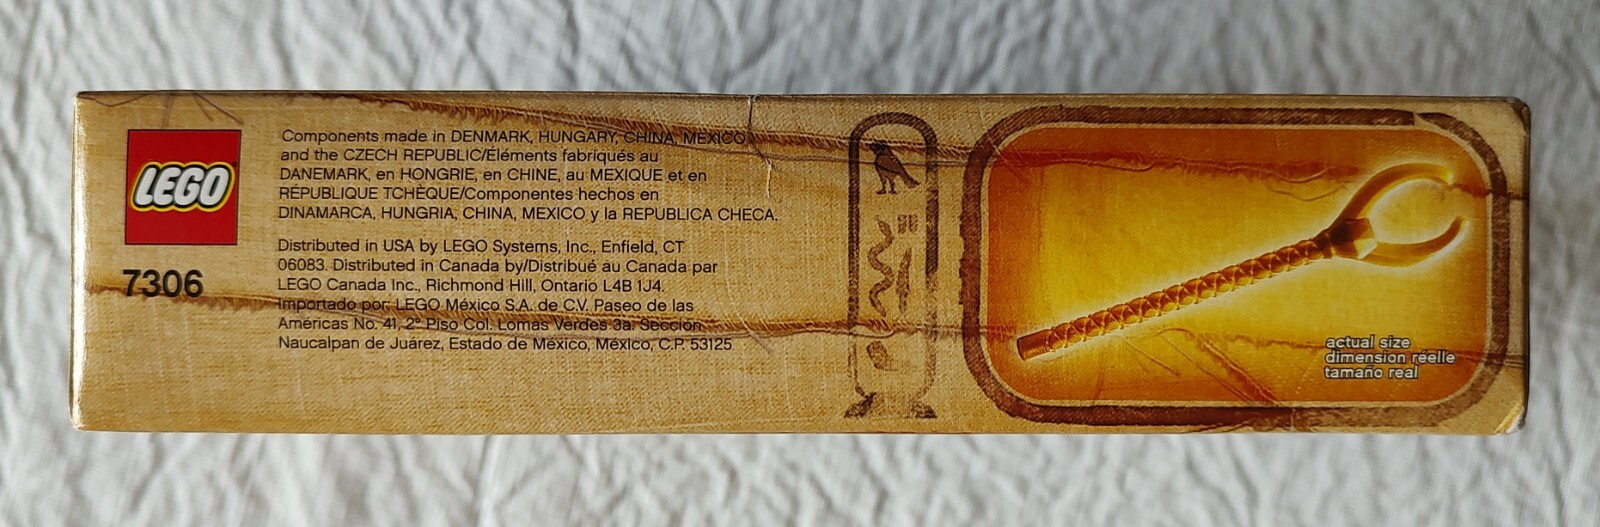 LEGO
7306
Components made in DENMARK, HUNGARY, CHINA, MEXICO
and the CZECH REPUBLIC/Éléments fabriqués au
DANEMARK, en HONGRIE, en CHINE, au MEXIQUE et en
RÉPUBLIQUE TCHÈQUE/Componentes hechos en
DINAMARCA, HUNGRIA, CHINA, MEXICO y la REPUBLICA CHECA.
Distributed in USA by LEGO Systems, Inc., Enfield, CT
06083. Distributed in Canada by/Distribué au Canada par
LEGO Canada Inc., Richmond Hill, Ontario L4B 1J4.
Importado por: LEGO México S.A. de C.V. Paseo de las
Américas No. 41, 2° Piso Col. Lomas Verdes 3a. Sección
Naucalpan de Juárez, Estado de México, México, C.P. 53125
actual size
dimension réelle
tamaño real